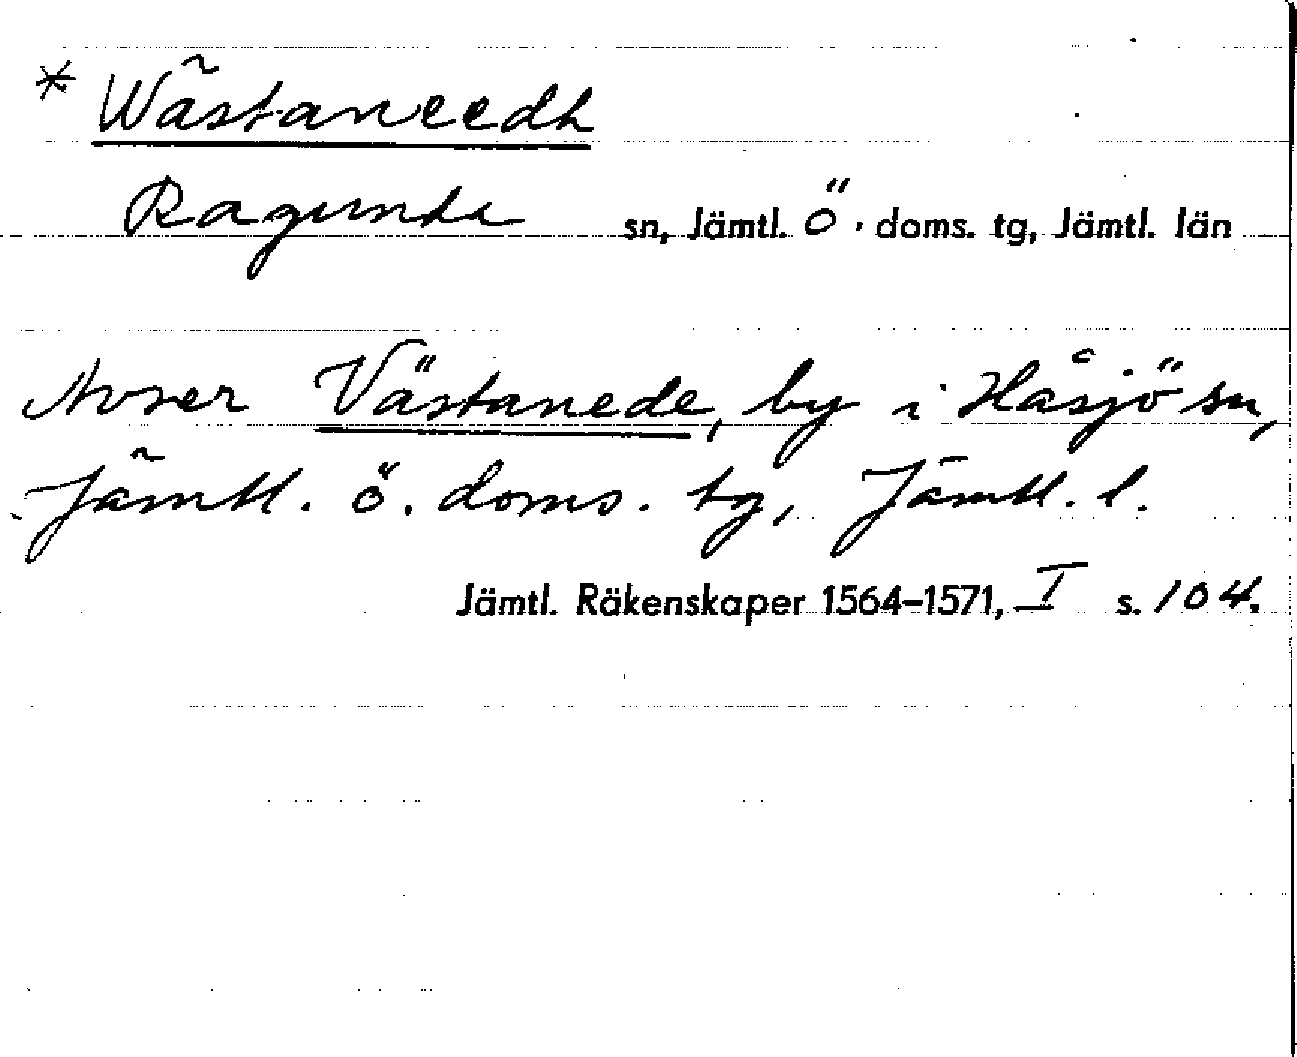 * Wästaneedh
Ragunda sn, Jämtl. Ö. doms. tg, Jämtl. län
Avser Västanede, by i Håsjö sn,
Jämtl. ö. doms. tg, Jämtl. l.
Jämtl. Räkenskaper 1564–1571, I s. 104.